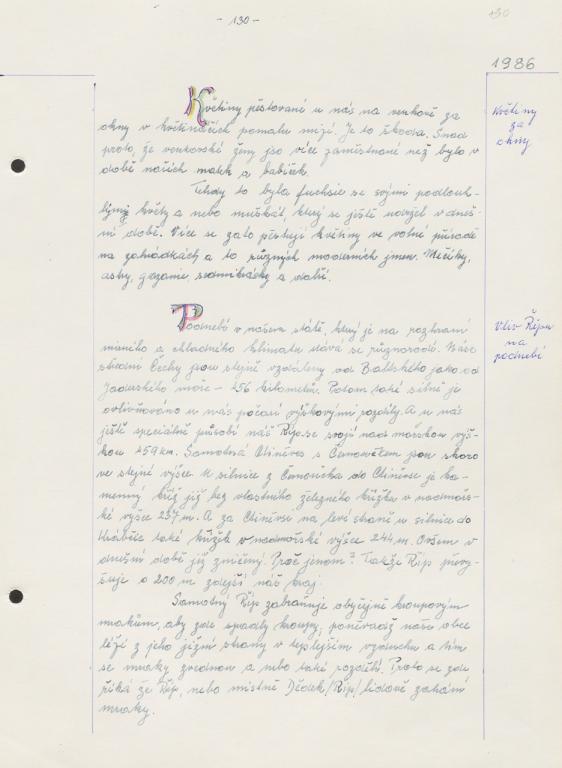 - 130 -
130
1986
Květiny
za
okny
Květiny pěstované u nás na venkově za
okny v květináčích pomalu mizí. Je to škoda. Snad
proto, že venkovské ženy jso více zaměstnané než bylo v
době našich matek a babiček.
Tehdy to byla fuchsie se svými podlouh-
lými květy a nebo muškát, který se ještě udržel v dneš-
ní době. Více se zato pěstují květiny ve volné přírodě
na zahrádkách a to různých moderních jmen. Mečíky,
astry, gazanie, sedmikrásky a další.
Vliv Řípu
na
podnebí
Podnebí v našem státě, který je na rozhraní
mírného a chladného klimatu dává se různorodě. Naše
střední Čechy jsou stejně vzdáleny od Baltského jako od
Jaderského moře - 456 kilometrů. Potom také silně je
ovlivňováno u nás počasí výškovými rozdíly. A u nás
ještě speciálně působí náš Říp se svojí nadmořskou výš-
kou 459 km. Samotná Ctiněves s Černoučkem jsou skoro
ve stejné výšce. U silnice z Černoučka do Ctiněvse je ka-
menný kříž již bez vlastního železného křížku v nadmoř-
ské výšce 237 m. A za Ctiněvsí na levé straně u silnice do
také křížek v nadmořské výšce 244 m. Ovšem v
dnešní době již zničený. Proč jenom? Takže Říp převy-
šuje o 200 m zdejší náš kraj.
Samotný Říp zabraňuje obyčejně kroupovým
mrakům, aby zde spadly kroupy, poněvadž naše obce
leží z jeho jižní strany v teplejším vzduchu a tím
se mraky zvednou a nebo také rozdělí. Proto se zde
říká že Říp, nebo místně Dědek /Říp/ lidově zahání
mraky.